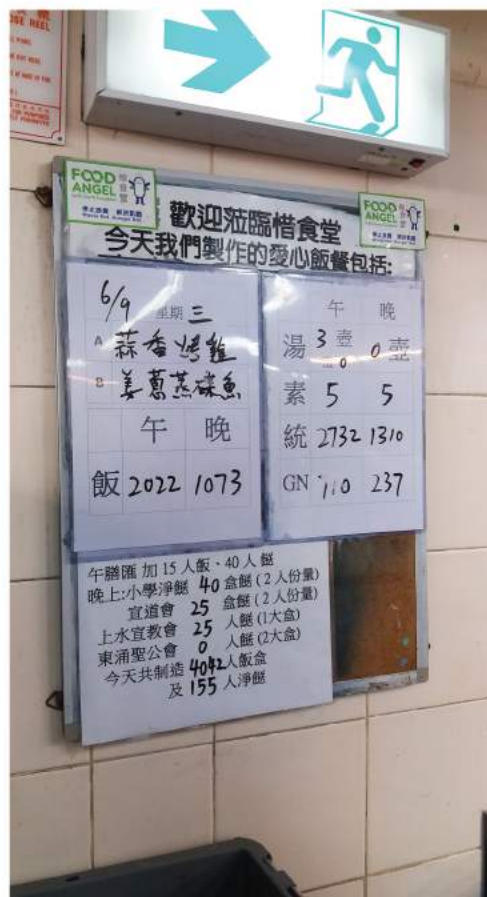 OSE REEL
FOOD
ANGEL
惜食堂
FOOD
ANGEL
惜食堂
歡迎蒞臨惜食堂
今天我們製作的愛心飯餐包括:
6/9 星期 三
A 蒜香烤雞
B 姜蔥蒸碟魚
午 晚
飯 2022 1073
午 晚
湯 3 壺 0 壺
0
素 5 5
統 2732 1310
GN 110 237
午膳匯 加 15 人飯、40 人餸
晚上:小學淨餸 40 盒餸 (2 人份量)
宣道會 25 盒餸 (2 人份量)
上水宣教會 25 人餸 (1大盒)
東涌聖公會 0 人餸 (2大盒)
今天共制造 4042 人飯盒
及 155 人淨餸